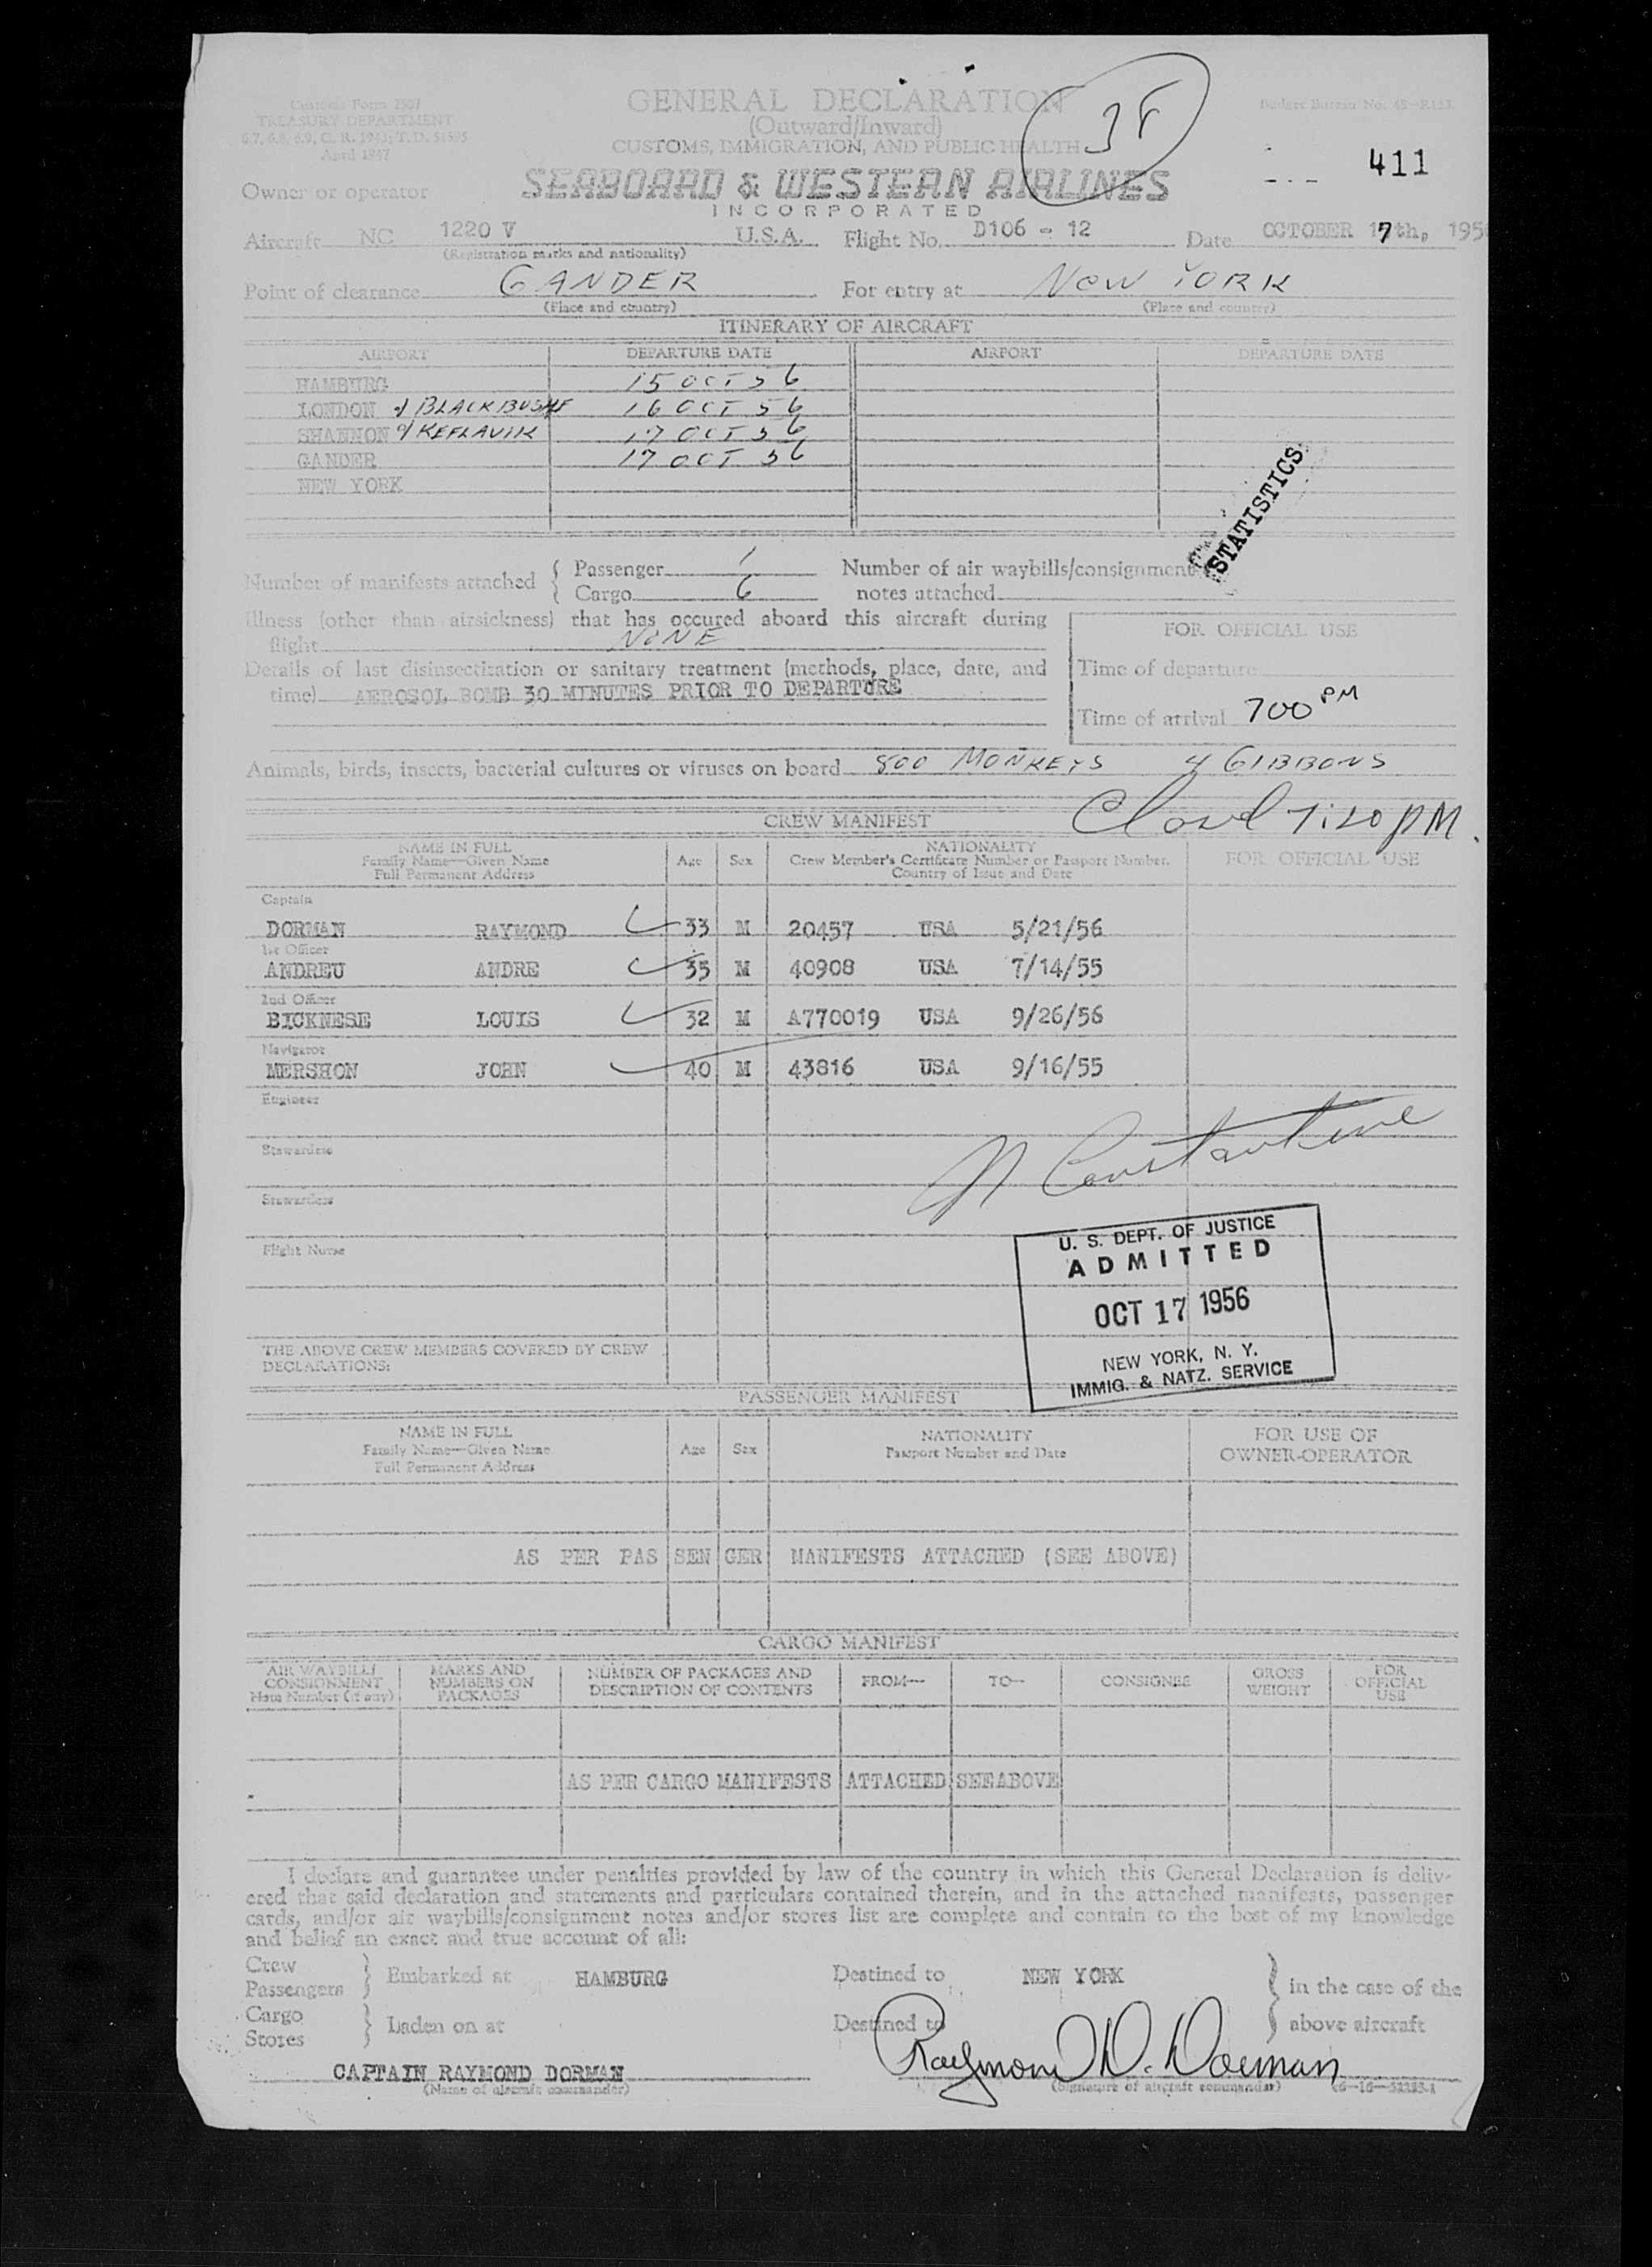 Customs Form 7507
TREASURY DEPARTMENT
6.7, 6.8, 6.9, C. R. 1943; T. D. 51595
April 1947
GENERAL DECLARATION
(Outward/Inward)
CUSTOMS, IMMIGRATION, AND PUBLIC HEALTH
Budget Bureau No.
411
Owner or operator
SEABOARD & WESTERN AIRLINES
INCORPORATED
Aircraft NC 1220 V U.S.A. Flight No. D106 - 12 Date OCTOBER 17th, 195
(Registration marks and nationality)
Point of clearance GANDER For entry at NEW YORK
(Place and country) (Place and country)
ITINERARY OF AIRCRAFT
AIRPORT DEPARTURE DATE AIRPORT DEPARTURE DATE
HAMBURG 15 OCT 56
LONDON BLACKBUSHE 16 OCT 56
SHANNON KEFLAVIK 17 OCT 56
GANDER 17 OCT 56
NEW YORK
STATISTICS
Number of manifests attached { Passenger 1 Number of air waybills/consignment
Cargo 6 notes attached
Illness (other than airsickness) that has occured aboard this aircraft during
flight NONE
FOR OFFICIAL USE
Details of last disinsectization or sanitary treatment (methods, place, date, and
time) AEROSOL BOMB 30 MINUTES PRIOR TO DEPARTURE
Time of departure
Time of arrival 700 PM
Animals, birds, insects, bacterial cultures or viruses on board 800 MONKEYS 4 GIBBONS
7:20 PM.
CREW MANIFEST
NAME IN FULL
Family Name—Given Name
Full Permanent Address
Age Sex
NATIONALITY
Crew Member's Certificate Number or Passport Number.
Country of Issue and Date
FOR OFFICIAL USE
Captain
DORMAN RAYMOND 33 M 20457 USA 5/21/56
1st Officer
ANDREU ANDRE 35 M 40908 USA 7/14/55
2nd Officer
BICKNESE LOUIS 32 M A770019 USA 9/26/56
Navigator
MERSHON JOHN 40 M 43816 USA 9/16/55
Engineer
Stewardess
N Constantine
Stewardess
Flight Nurse
U. S. DEPT. OF JUSTICE
ADMITTED
OCT 17 1956
NEW YORK, N. Y.
IMMIG. & NATZ. SERVICE
THE ABOVE CREW MEMBERS COVERED BY CREW
DECLARATIONS:
PASSENGER MANIFEST
NAME IN FULL
Family Name—Given Name
Full Permanent Address
Age Sex
NATIONALITY
Passport Number and Date
FOR USE OF
OWNER-OPERATOR
AS PER PAS SEN GER MANIFESTS ATTACHED (SEE ABOVE)
CARGO MANIFEST
AIR WAYBILL/
CONSIGNMENT
Note Number (if any)
MARKS AND
NUMBERS ON
PACKAGES
NUMBER OF PACKAGES AND
DESCRIPTION OF CONTENTS
FROM—
TO—
CONSIGNEE
GROSS
WEIGHT
FOR
OFFICIAL
USE
AS PER CARGO MANIFESTS ATTACHED SEE ABOVE
I declare and guarantee under penalties provided by law of the country in which this General Declaration is deliv-
ered that said declaration and statements and particulars contained therein, and in the attached manifests, passenger
cards, and/or air waybills/consignment notes and/or stores list are complete and contain to the best of my knowledge
and belief an exact and true account of all:
Crew
Passengers } Embarked at HAMBURG Destined to NEW YORK } in the case of the
Cargo
Stores } Laden on at Destined to } above aircraft
CAPTAIN RAYMOND DORMAN Raymond W. Dorman
(Name of aircraft commander) (Signature of aircraft commander)